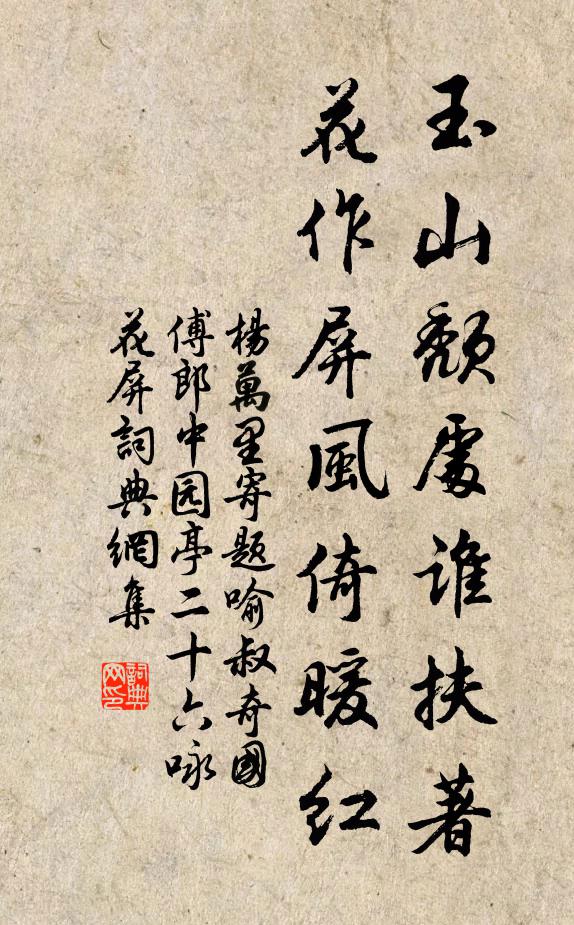 玉山頹處誰扶著
花作屏風倚暖红
楊萬里寄題喻叔奇國
傅郎中园亭二十六詠
花屏詞典網集
詞典网印